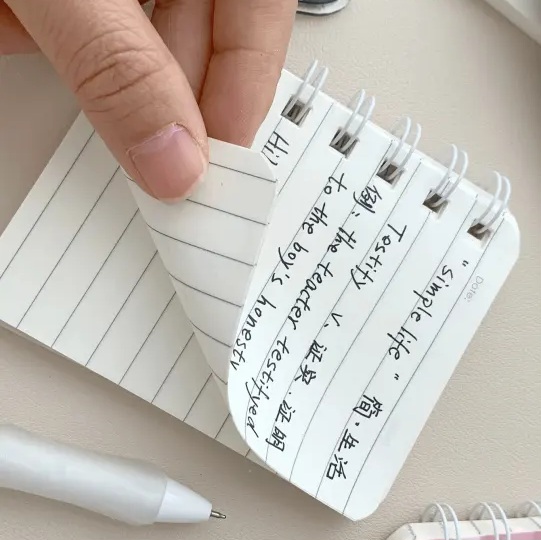 Date:
"simple life" 简·生活
Testify v. 证实.证明
例: the teacter testifyed
to the boy's honesty
Hi!